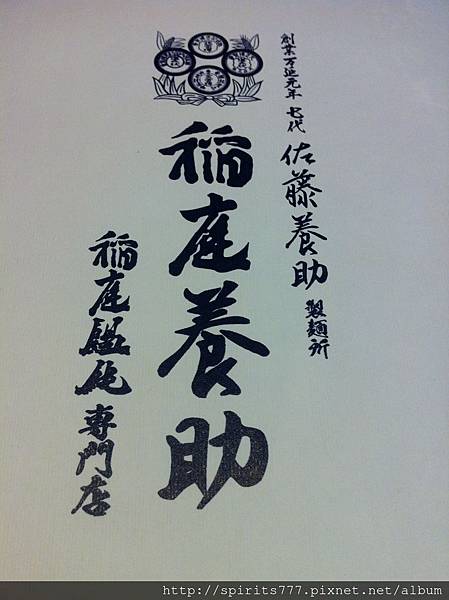 創業万延元年 七代 佐藤養助 製麺所
稲庭養助
稲庭饂飩専門店
http://spirits777.pixnet.net/album